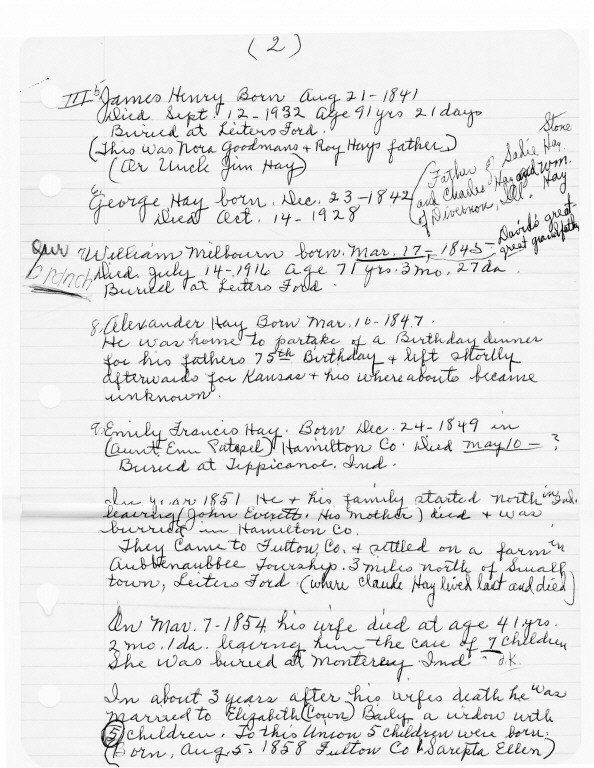 (2)
III 5 James Henry Born Aug 21-1841
Died Sept. 12-1932 Age 91 yrs 21 days
Buried at Leiters Ford.
(This was Nora Goodmans + Roy Hays father)
(Or Uncle Jim Hay)
6 George Hay born. Dec. 23-1842
Died Oct. 14-1928
(Father of Sadie Hay Stone
and Charles Hay and Wm. Hay
of Divernon, Ill.
Our Branch
7 William Milbourn born. Mar. 17-1845- David's great-
great grandfather
Died July 14-1916 age 71 yrs. 3 mo. 27 da.
Buried at Leiters Ford.
8. Alexander Hay Born Mar. 10-1847.
He was home to partake of a Birthday dinner
for his fathers 75th Birthday + left shortly
afterwards for Kansas + his whereabouts became
unknown.
9. Emily Francis Hay. Born Dec. 24-1849 in
(Aunt Em ) Hamilton Co. Died May 10 - ?
Buried at Tippicanoe. Ind.
In year 1851 He + his family started north in Ind.
leaving (John Everett. His mother) died + was
burried in Hamilton Co.
They Came to Fulton, Co. + settled on a farm in
Aubbenaubbee Township. 3 miles north of Small
town, Leiters Ford. (where Claude Hay lived last and died)
On Mar. 7-1854, his wife died at age 41 yrs.
2 mo. 1 da. leaving him the care of 7 children
She was buried at Monterey Ind - O.K.
In about 3 years after his wifes death he was
married to Elizabeth (Cown) Baily a widow with
(5) children. To this Union 5 children were born.
(Born, Aug. 5- 1858 Fulton Co - Sarepta Ellen)